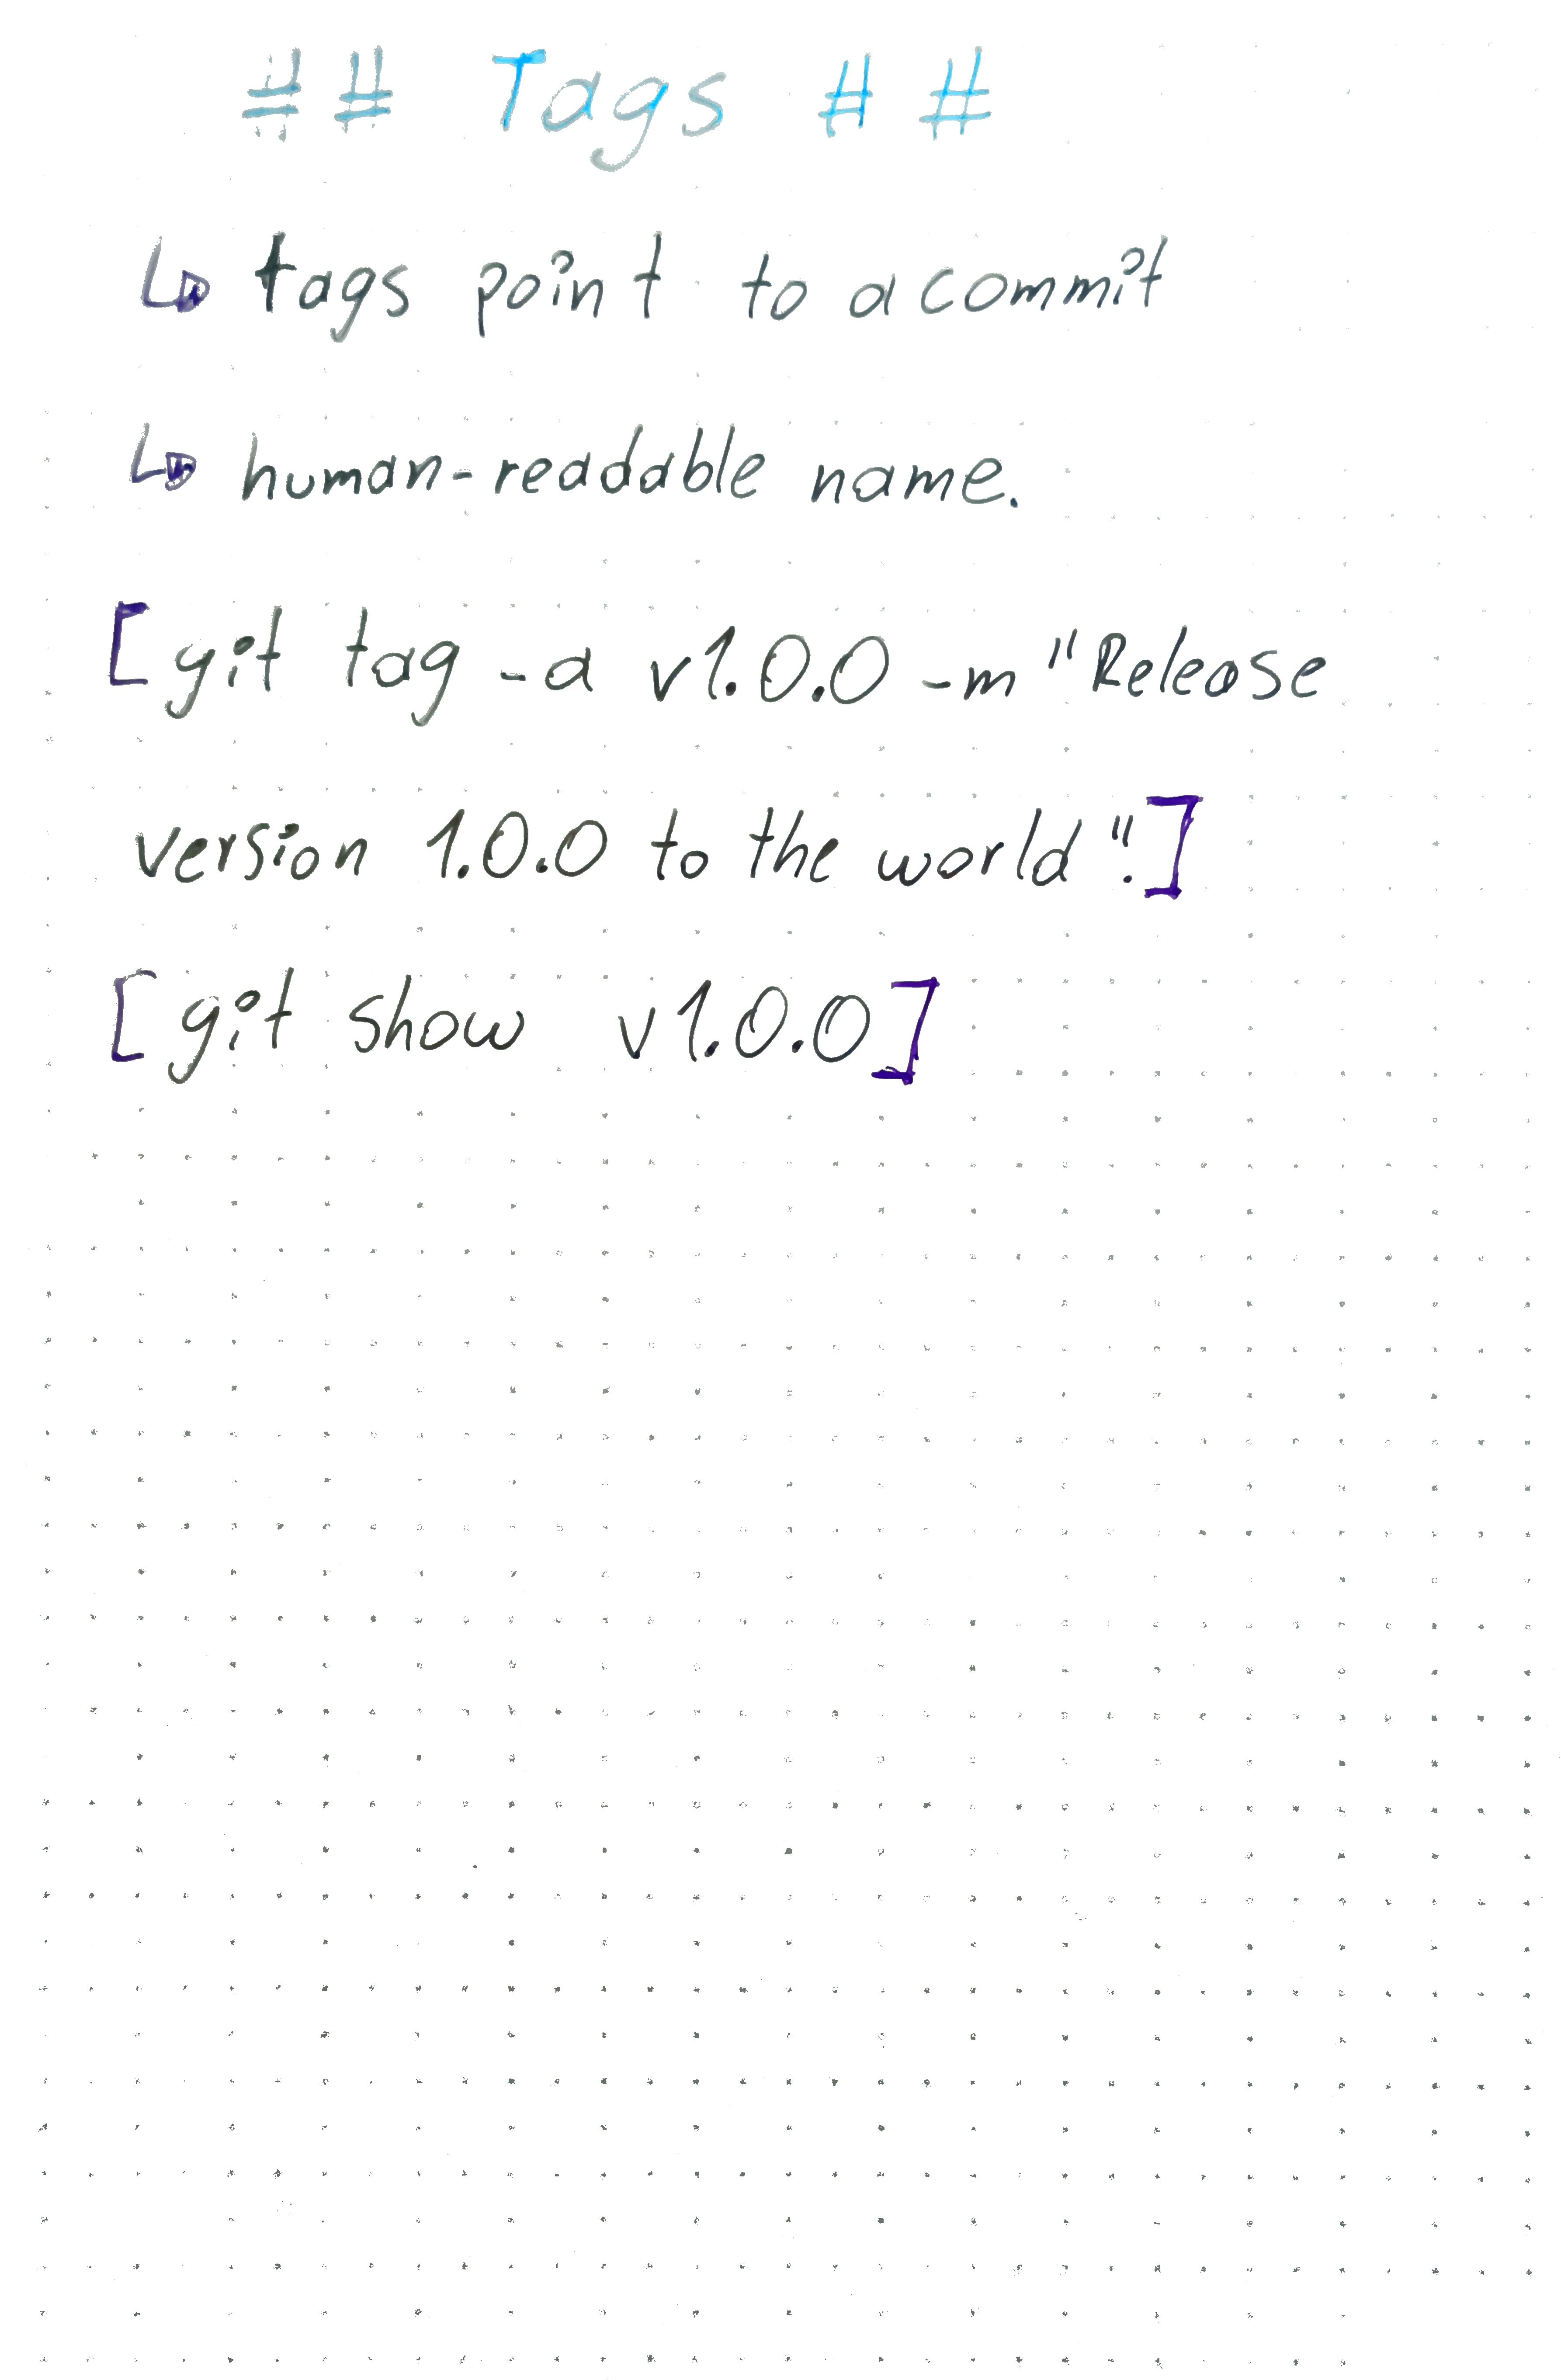 ## Tags ##
↳ tags point to a commit
↳ human-readable name.
[git tag -a v1.0.0 -m "Release
version 1.0.0 to the world".]
[git show v1.0.0]